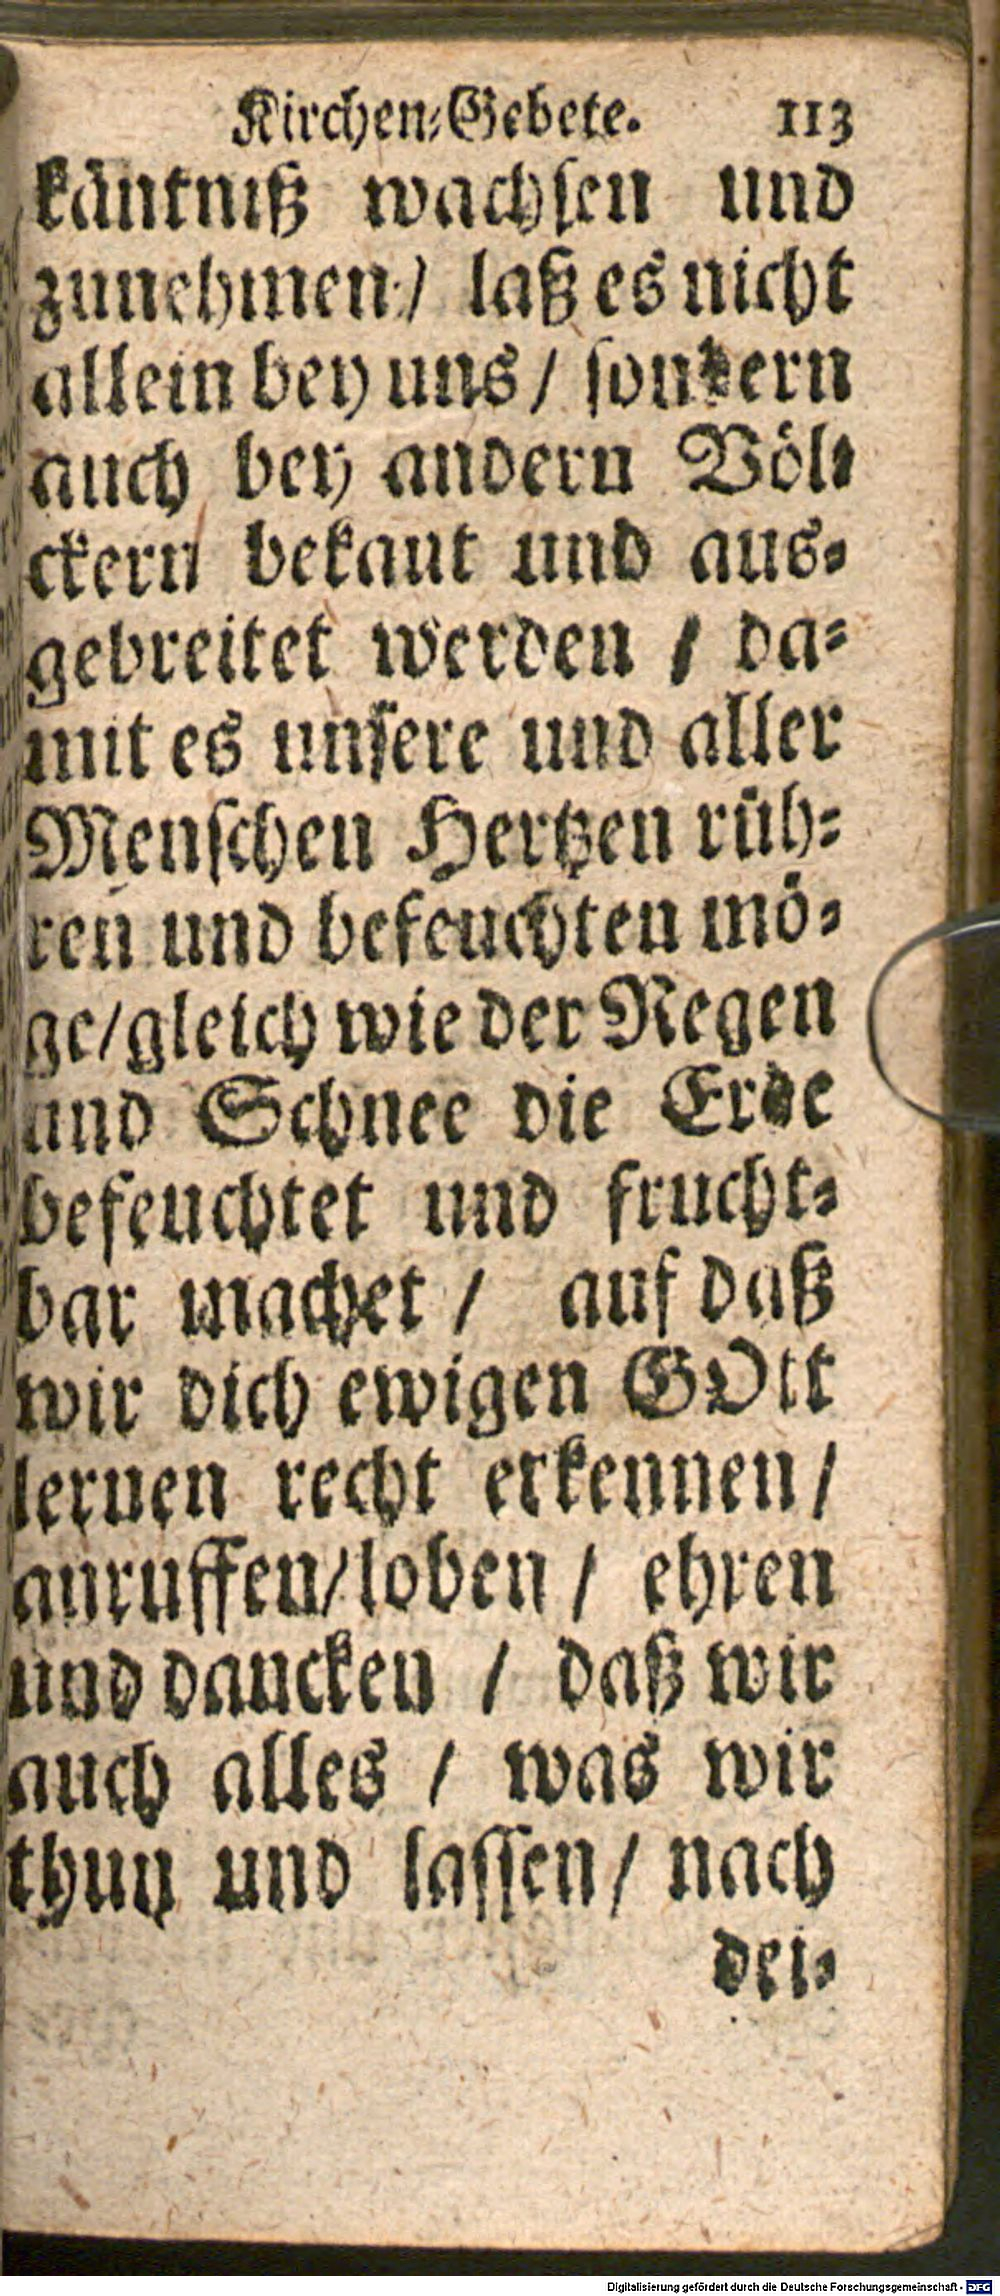 Kirchen-Gebete. 113
käntniß wachsen und
zunehmen / laß es nicht
allein bey uns / sondern
auch bey andern Völ-
ckern bekant und aus-
gebreitet werden / da-
mit es unsere und aller
Menschen Hertzen rüh-
ren und befeuchten mö-
ge / gleich wie der Regen
und Schnee die Erde
befeuchtet und frucht-
bar machet / auf daß
wir dich ewigen GOtt
lernen recht erkennen /
anruffen / loben / ehren
und dancken / daß wir
auch alles / was wir
thun und lassen / nach
dei-
Digitalisierung gefördert durch die Deutsche Forschungsgemeinschaft - DFG